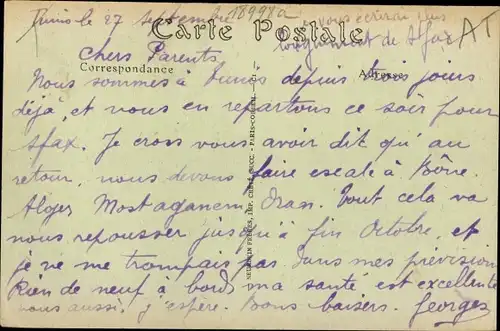 Tunis le 27 septembre 18998a
Je vous écrirai plus
longuement de Sfax AT
Carte Postale
Chers Parents
Correspondance Adresse
Nous sommes à Tunis depuis trois jours
déjà, et nous en repartons ce soir pour
Sfax. Je crois vous avoir dit qu'au
retour, nous devons faire escale à Bône.
Alger Mostaganem Oran. Tout cela va
nous repousser jusqu'à fin Octobre, et
je ne me trompais pas dans mes prévisions
Rien de neuf à bord, ma santé est excellente
vous aussi j'espère. Bons baisers. Georges